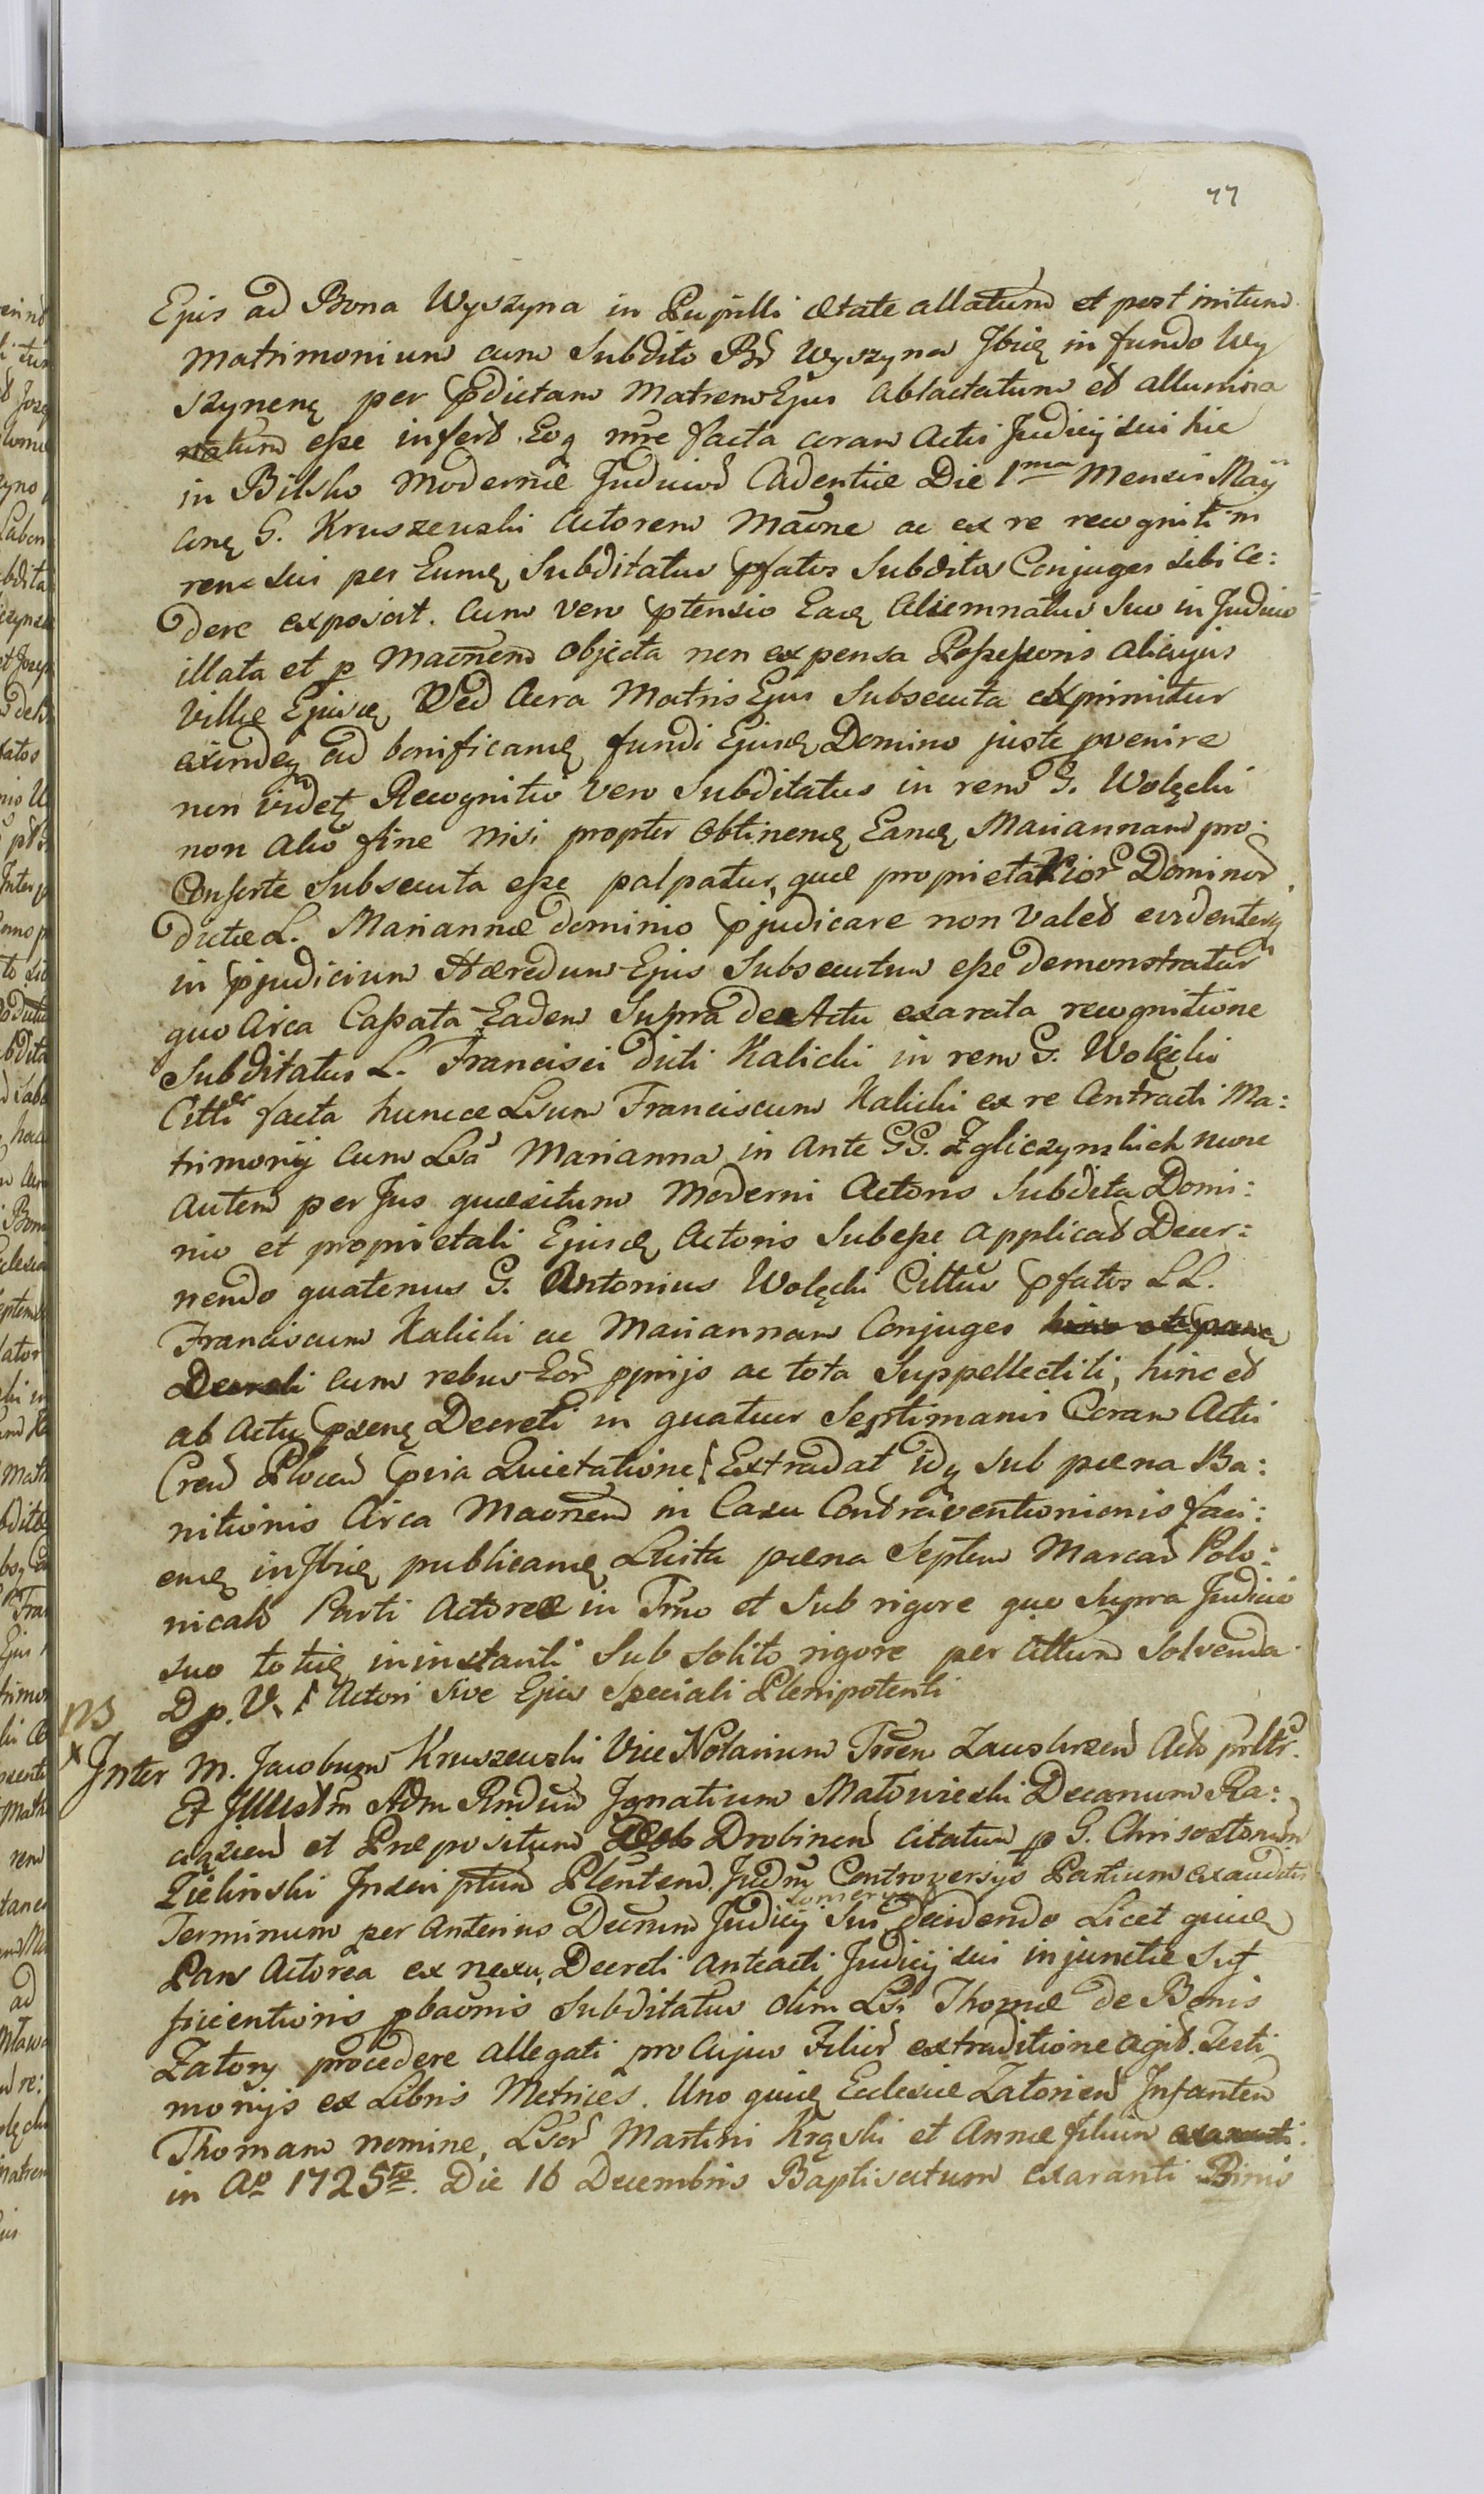 77
Ejus ad Bona Wyszyna in Pupilli ætate allatum et post initum
matrimonium cum Subdito Bd Wyszyna Ibiq in fundo Wy
szynenq per pdictam Matrem Ejus ablactatum et allumina
natum eße infert. Eoq nre facta coram Actis Judicij sui hic
in Bilsko modernæ Judicior Cadentiæ Die 1ma Mensis Maij
conq G. Kruszewski Actorem maõne ac ex re recogniti in
rem sui per Eumq Subditatus pfatos Subditos Conjuges sibi ce:
dere exposcit. Cum vero ptensio Eaq Aliemnatus Suo in Judicio
illata et p maõnem objecta non expensa Poßeßionis alicujus
Villæ Ejusq Sed Acra Matris Ejus Subsecuta exprimitur
exindeq ad bonificanq fundi Ejusq Domino juste pvenire
non videtq Recognitio vero Subditatus in rem G. Wolęcki
non alio fine nisi propter obtinenq Eanq Mariannam pro
Consorte Subsecuta eße palpatur, quæ proprietarior Dominor
dictæ L. Mariannæ dominio pjudicare non valet evidenterq
in pjudicium Hæredum Ejus Subsecutum eße demonstratur
quo Circa Caßata Eadem Supra de Actu exarata recognitione
Subditatus L. Francisci dicti Kalicki in rem G. Wolęcki
Citti facta huncce LSum Franciscum Kalicki ex re Contracti Ma:
trimonij cum LSa Marianna in ante GG. Zgliczynskich nunc
autem per Jus quæsitum moderni Actoris Subdita Domi:
nio et proprietati Ejusq Actoris Subeße applicat Decer:
nendo quatenus G. Antonius Wolęcki Cittus pfatos LL.
Franciscum Kalicki ac Mariannam Conjuges
Decreti cum rebus Eor pprijs ac tota Suppellectili, hinc et
ab Actu psenq Decreti in quatuor Septimanis Coram Actis
Cren Plocen pvia Quietatione Extradat idq sub pæna Ba:
nitionis Circa Maõnem in Casu Contraventionionis faci:
enq in Ibiq publicanq Luita pæna Septem Marcar Polo:
nical Parti Actoreæ in Trno et sub rigore quo supra Judicio
suo totiq in instanti Sub solito rigore per Cittum Solvenda
D p. V. Actori sive Ejus Speciali Plenipotenti
ns
x Inter M. Jacobum Kruszewski Vice Notarium Trren Zauskrzen Act prltr.
Et Illustm Adm Rndum Ignatium Matowieski Decanum Ra:
ciążen et Præpositum Drobinen citatum p G. Chrisostomum
Zielinski Inscriptum Plentem. Judm Controversijs Partium exauditis
Terminum per Anterius Decrum Judicij Sui decidendo Licet quiq
Pars Actorea ex nexu Decreti anteacti Judicij sui injunctæ Suf
ficientioris pbaõnis Subditatus olim LSi Thomæ de Bonis
Zatory procedere allegati pro cujus Filior extraditione agit. Testi
monijs ex Libris Metrices. Uno quiq Ecclesiæ Zatorien Infantem
Thomam nomine, LSor Martini Krąski et Annæ filium
in Ao 1725to. Die 16 Decembris Baptisatum exaranti Binis